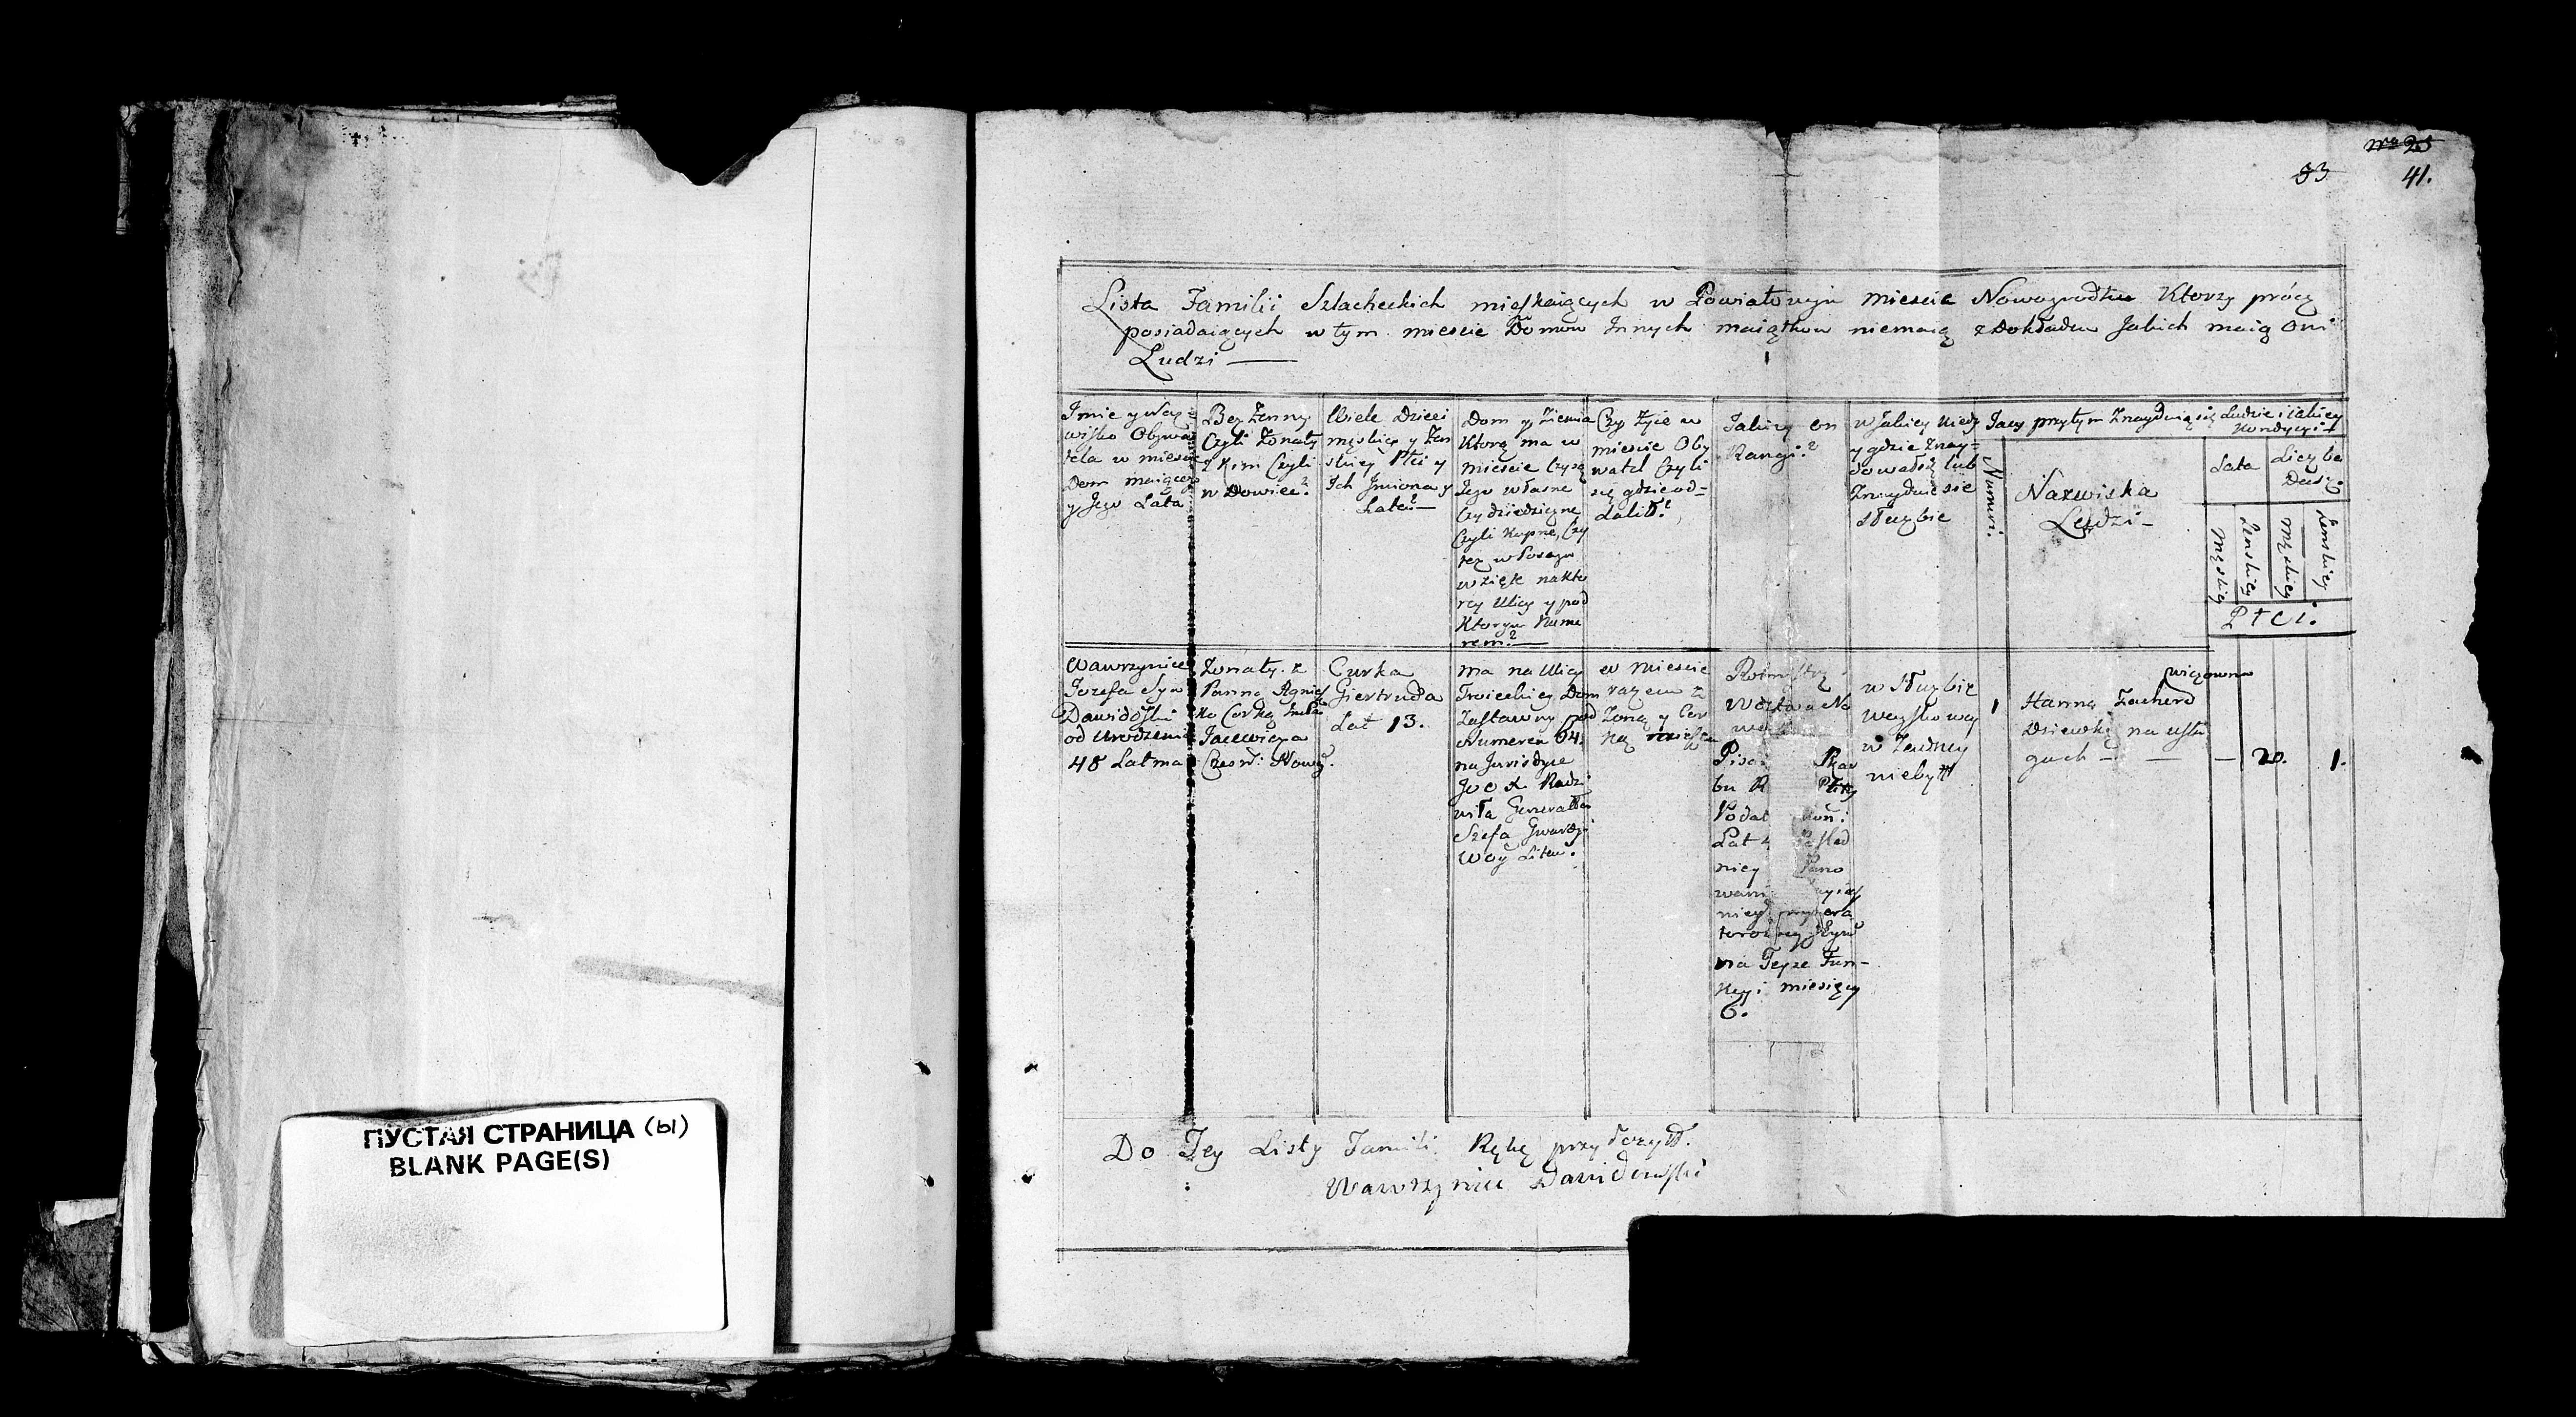 ПУСТАЯ СТРАНИЦА (ы)
BLANK PAGE(S)
No 25
53 41.
Lista Familii Szlacheckich mieszkaiących w Powiatowym miescie Nowogrodku Ktorzy prócz
posiadaiących w tym miescie Domow Innych maiątkow niemaią z Dokładem Jakich maią Oni
Ludzi
Imie y Naz=
wisko Obywa
tela w miescie
Dom maiącego
y Jego Lata
Bez Zenny
Czyli Zonaty
z Kim Czyli
w Dowiec?
Wiele Dzieci
męskiey y Zen
skiey Płci y
Ich Imiona y
Lata?
Dom y Ziemia
Ktorą ma w
miescie Czy są
Jego własne
Czy dziedziczne
Czyli Kupne, Czy
tez w Posagu
wzięte na kto
rey Ulicy y pod
Ktorym Nume
rem?
Czy Zyie w
miescie Oby
watel Czyli
się gdzie od=
dalił?
Jakiey on
Rangi?
w Jakiey Kiedy
y gdzie Znay=
dował się lub
Znayduie sie
słuzbie
Jacy przytym Znayduią się Ludzie i iakiey
Kondycyi
Numeri.
Nazwiska
Ludzi
Lata
Liczba
Dusz.
Męskiey
Zenskiey
Męskiey
Zenskiey
Płci.
Wawrzyniec
Jozefa Syn
Dawidoski
od Urodzenia
48 Lat ma
Zonaty z
Panną Agniesz
ką Corką
Jacewicza
Czesn: Nowg.
Curka
Giertruda
Lat 13.
ma na Ulicy
Troieckiey Dom
Zastawny pod
Numerem 64.
na Jurisdyce
Radzi
wiła Generała
Szefa Gwardyi
Woy Litew.
w miescie
razem z
Zoną y Cor
ką
Rotmistrz
Na
Pisa Skar
bu
Podat
Lat
niey Pano
wani
na Teyze Fun-
kcyi miesięcy
6.
w słuzbie
woyskowey
w Zadney
niebył
1
Hanna Zachere
wiczowna
Dziewka na usłu
gach — — — 20. 1.
Do Tey Listy Famili Rękę przyłozył.
Wawrzyniec Dawidowski